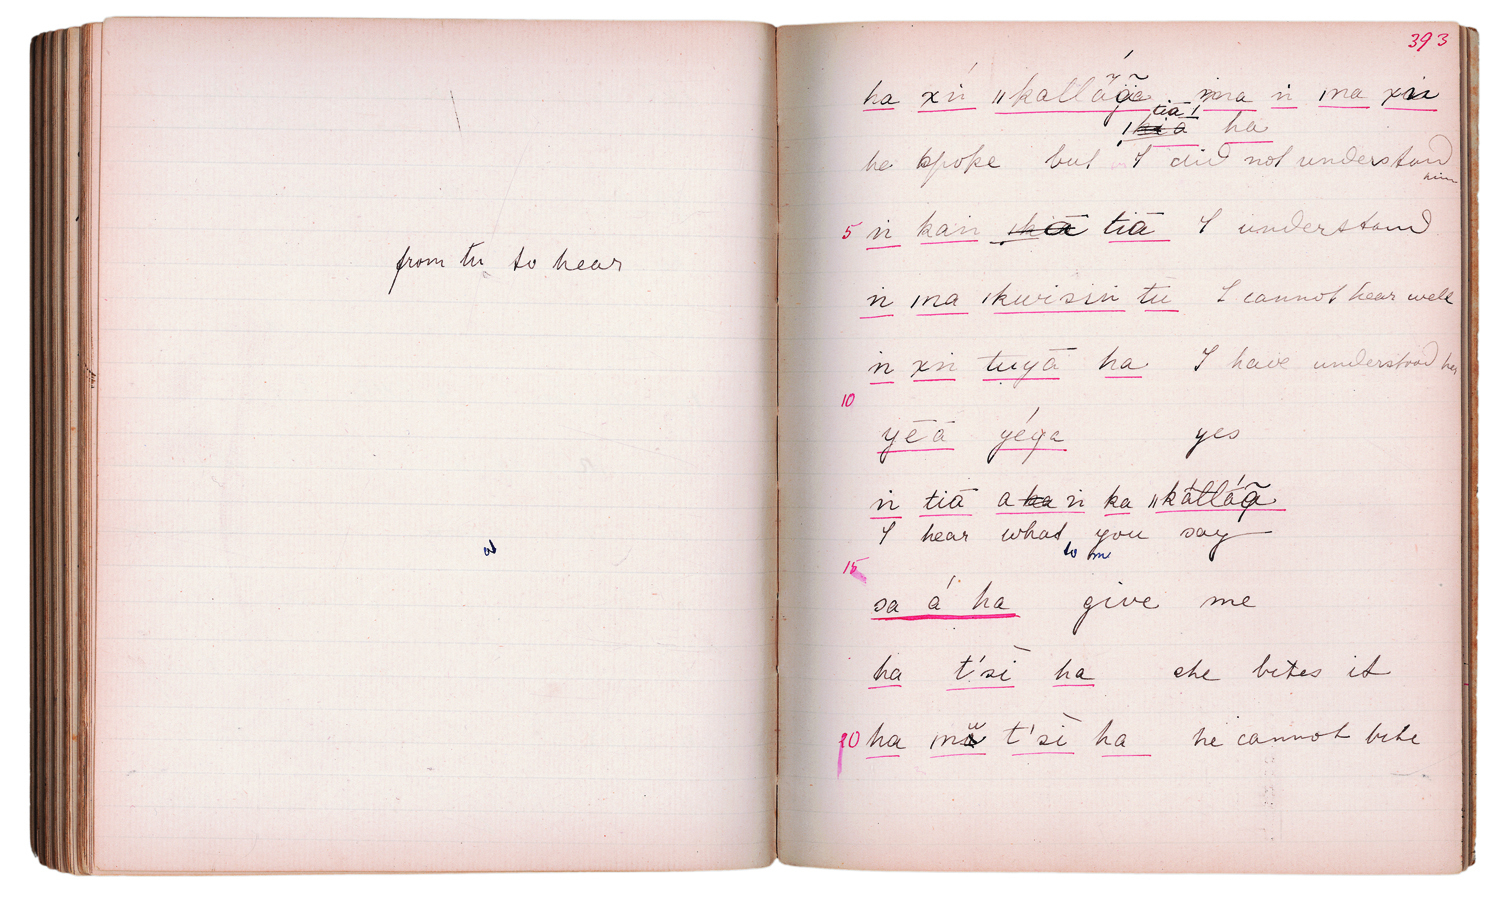 from tu to hear
393
ha xṅ ǁkatláğã ṁa ṅ ǀna xṅ
tiā ǀ
ǀkiā ha
he spoke but I did not understand
him
5 ṅ kaṅ ǀkiā tiā I understand
ṅ ǀna ǀkwisiṅ tu I cannot hear well
ṅ xṅ tuyā ha I have understood
10
yēā yéya yes
ṅ tiā a ha ṅ ka ǁkátláã
I hear what you say
to me
15
sa á ha give me
ha t'sì ha she bites it
20 ha ǀnǔ t'sì ha he cannot bite